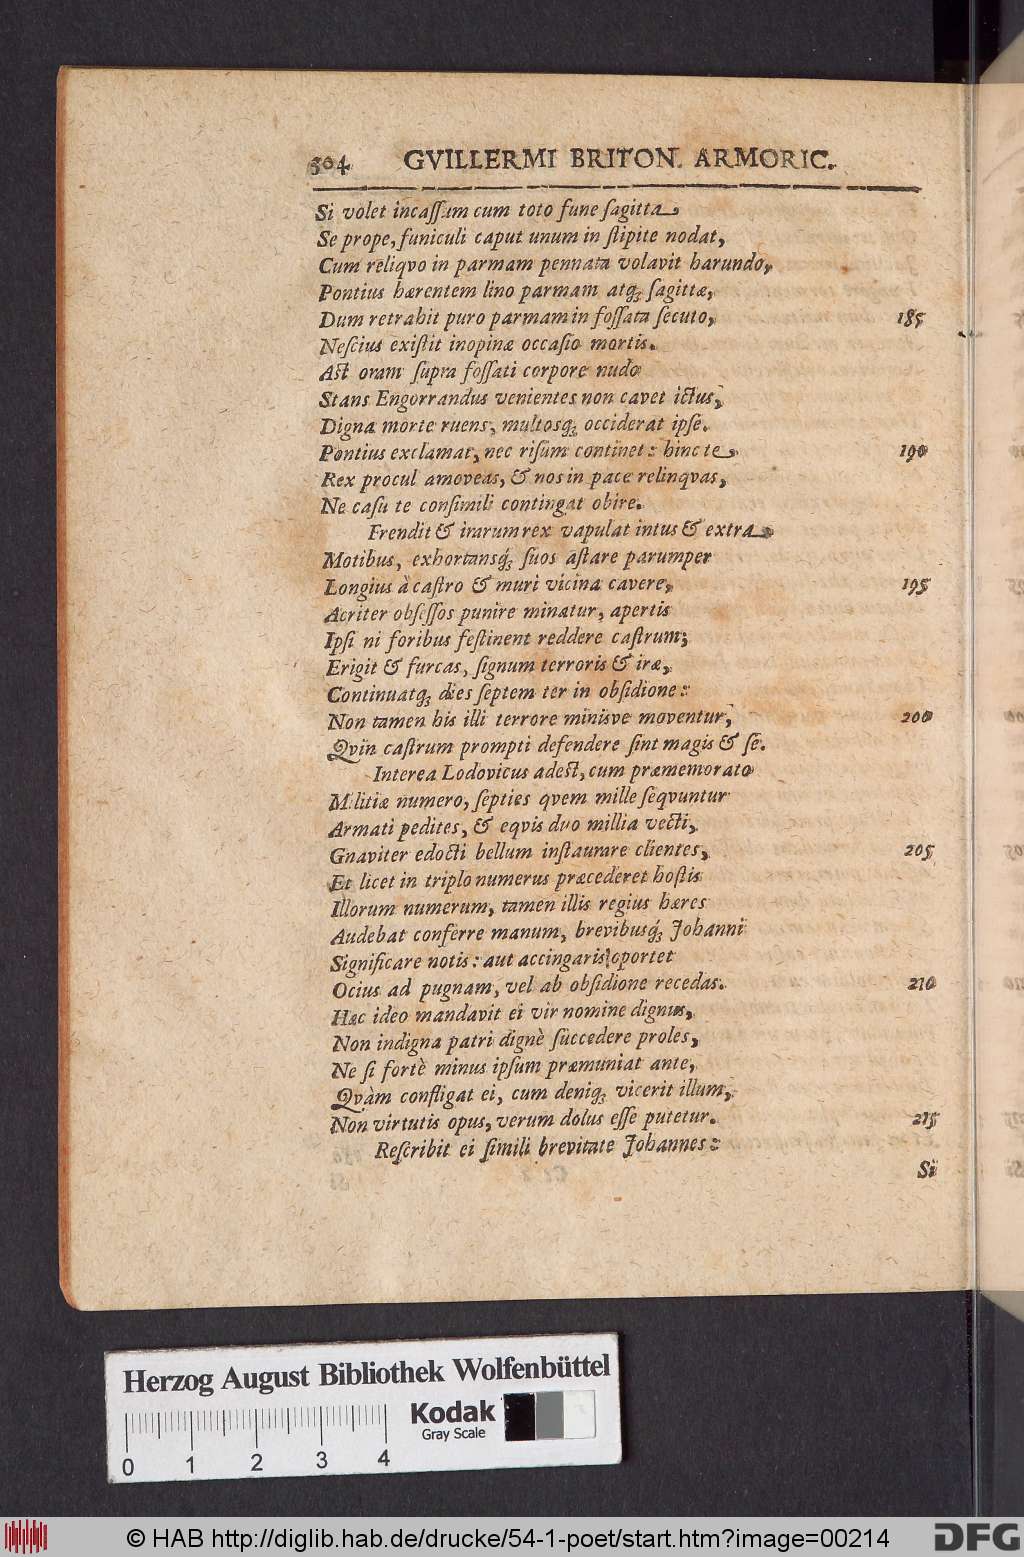 504 GVILLERMI BRITON. ARMORIC.
Si volet incaſſum cum toto fune ſagitta,
Se prope, funiculi caput unum in ſtipite nodat,
Cum reliqvo in parmam pennata volavit harundo,
Pontius hærentem lino parmam atq́; ſagittæ,
Dum retrahit puro parmam in foſſata ſecuto, 185
Neſcius exiſtit inopinæ occaſio mortis.
Aſt oram ſupra foſſati corpore nudo
Stans Engorrandus venientes non cavet ictus,
Digna morte ruens, multosq́; occiderat ipſe.
Pontius exclamat, nec riſum continet: hinc te, 190
Rex procul amoveas, & nos in pace relinqvas,
Ne caſu te conſimili contingat obire.
Frendit & irarum rex vapulat intus & extra
Motibus, exhortansq́; ſuos aſtare parumper
Longius à caſtro & muri vicina cavere, 195
Acriter obſeſſos punire minatur, apertis
Ipſi ni foribus feſtinent reddere caſtrum;
Erigit & furcas, ſignum terroris & iræ,
Continuatq́; dies ſeptem ter in obſidione:
Non tamen his illi terrore minisve moventur, 200
Qvin caſtrum prompti defendere ſint magis & ſe.
Interea Lodovicus adeſt, cum præmemorato
Militiæ numero, ſepties qvem mille ſeqvuntur
Armati pedites, & eqvis duo millia vecti,
Gnaviter edocti bellum inſtaurare clientes, 205
Et licet in triplo numerus præcederet hoſtis
Illorum numerum, tamen illis regius hæres
Audebat conferre manum, brevibusq́; Johanni
Significare notis: aut accingaris oportet
Ocius ad pugnam, vel ab obſidione recedas. 210
Hæc ideo mandavit ei vir nomine dignus,
Non indigna patri dignè ſuccedere proles,
Ne ſi fortè minus ipſum præmuniat ante,
Qvàm confligat ei, cum deniq́; vicerit illum,
Non virtutis opus, verum dolus eſſe putetur. 215
Reſcribit ei ſimili brevitate Johannes:
Si
Herzog August Bibliothek Wolfenbüttel
Kodak
Gray Scale
0 1 2 3 4
© HAB http://diglib.hab.de/drucke/54-1-poet/start.htm?image=00214
DFG